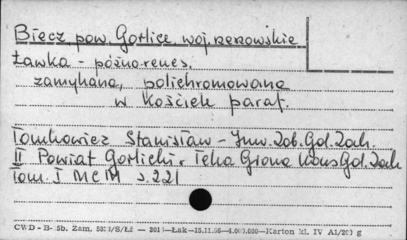 Biecz pow. Gorlice woj. rzeszowskie
Ławka - późnorenes.
zamykana, polichromowana
w kościele paraf.
Tomkowicz Stanisław - Inw. Zab. Gal. Zach.
II Powiat Gorlicki. Teka Grona Kons Gal. Zach
Tom. I MCM s. 221
CWD - B- 5b. Zam.